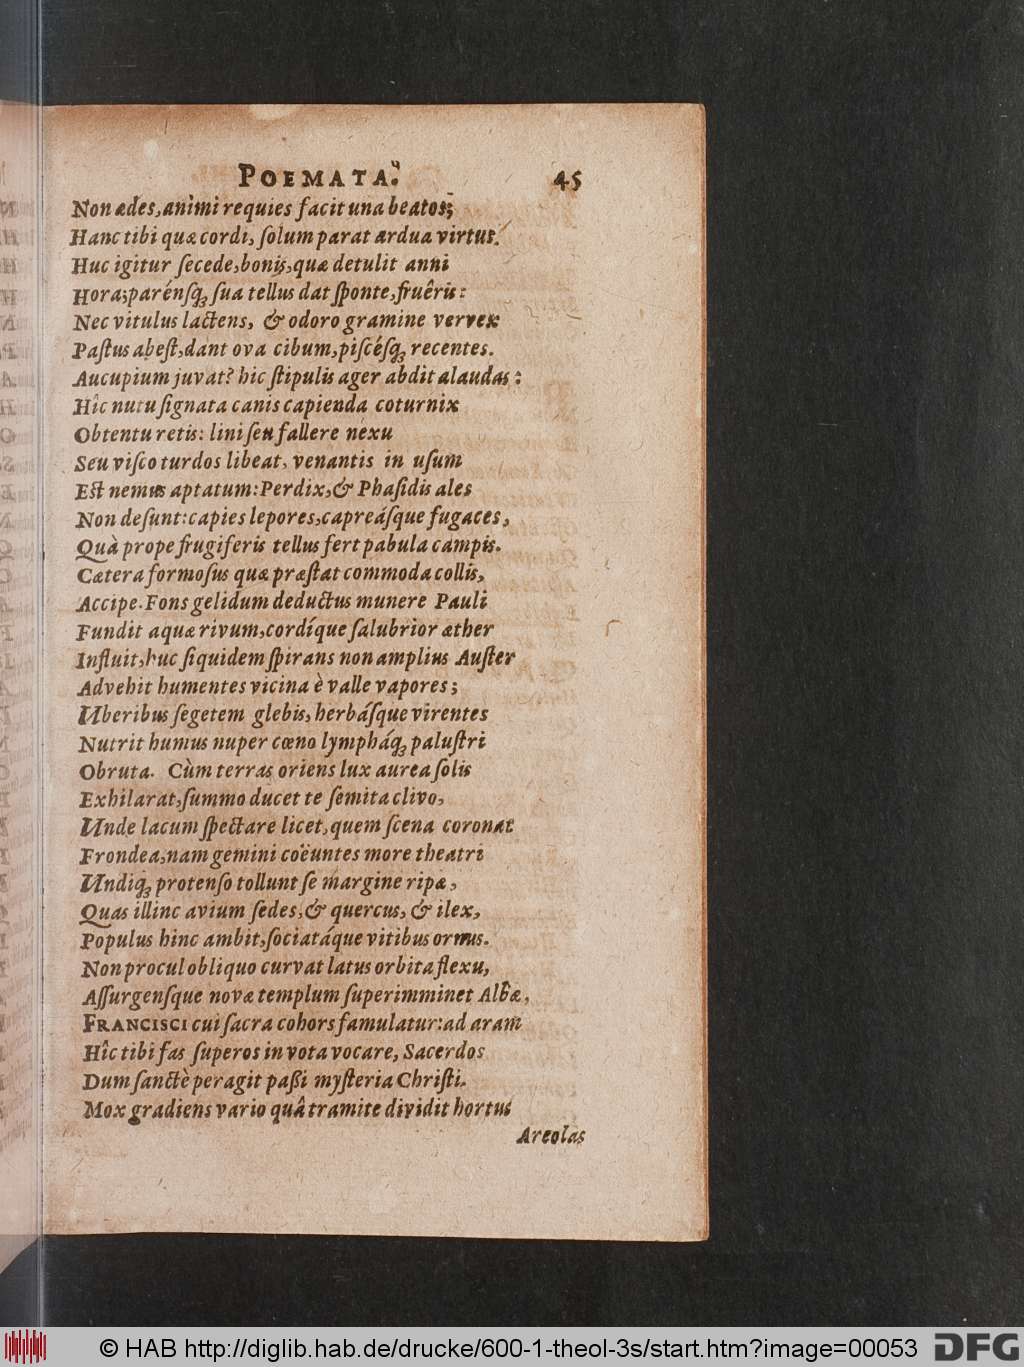 POEMATA. 45
Non ædes, animi requies facit una beatos;
Hanc tibi quæ cordi, ſolum parat ardua virtus.
Huc igitur ſecede, bonis, quæ detulit anni
Hora; parénſq; ſua tellus dat ſponte, fruêris:
Nec vitulus lactens, & odoro gramine vervex
Paſtus abeſt, dant ova cibum, piſcéſq; recentes.
Aucupium juvat? hic ſtipulis ager abdit alaudas:
Hîc nutu ſignata canis capienda coturnix
Obtentu retis: lini ſeu fallere nexu
Seu viſco turdos libeat, venantis in uſum
Eſt nemus aptatum: Perdix, & Phaſidis ales
Non deſunt: capies lepores, capreáſque fugaces,
Quà prope frugiferis tellus fert pabula campis.
Cætera formoſus quæ præſtat commoda collis,
Accipe. Fons gelidum deductus munere Pauli
Fundit aquæ rivum, cordíque ſalubrior æther
Influit, huc ſiquidem ſpirans non amplius Auſter
Advehit humentes vicina è valle vapores;
Uberibus ſegetem glebis, herbáſque virentes
Nutrit humus nuper cœno lympháq; paluſtri
Obruta. Cùm terras oriens lux aurea ſolis
Exhilarat, ſummo ducet te ſemita clivo,
Unde lacum ſpectare licet, quem ſcena coronat
Frondea, nam gemini coëuntes more theatri
Undiq; protenſo tollunt ſe margine ripæ,
Quas illinc avium ſedes, & quercus, & ilex,
Populus hinc ambit, ſociatáque vitibus ornus.
Non procul obliquo curvat latus orbita flexu,
Aſſurgenſque novæ templum ſuperimminet Albæ,
FRANCISCI cui ſacra cohors famulatur: ad aram
Hîc tibi fas ſuperos in vota vocare, Sacerdos
Dum ſanctè peragit paßi myſteria Chriſti.
Mox gradiens vario quâ tramite dividit hortus
Areolas
© HAB http://diglib.hab.de/drucke/600-1-theol-3s/start.htm?image=00053 DFG